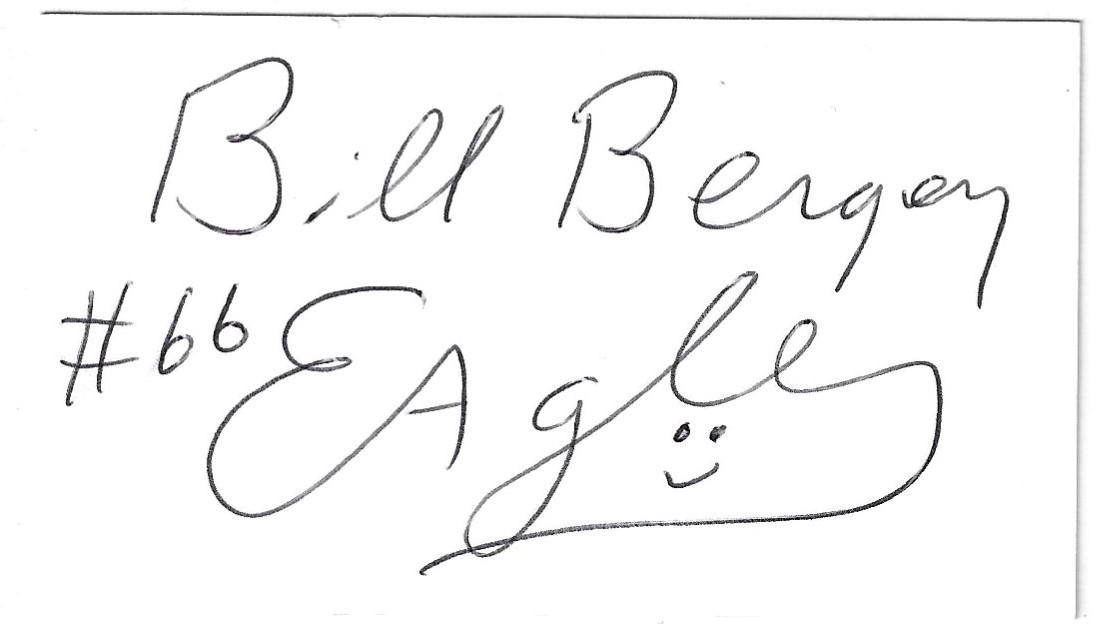 Bill Bergey
#66 EAgles